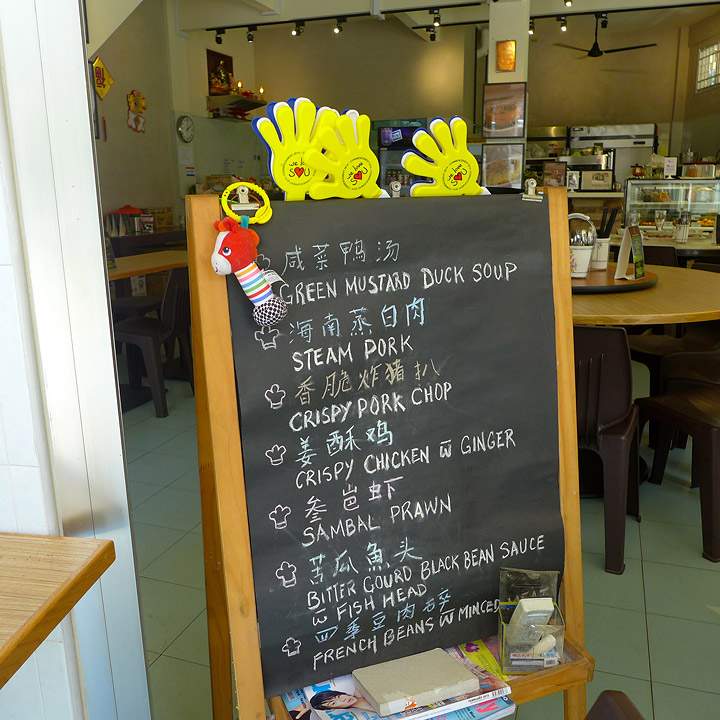 we love
SU
we love
SU
we love
SU
咸菜鴨汤
GREEN MUSTARD DUCK SOUP
海南蒸白肉
STEAM PORK
香脆炸猪扒
CRISPY PORK CHOP
姜酥鸡
CRISPY CHICKEN w̅ GINGER
叁岜虾
SAMBAL PRAWN
苦瓜魚头
BITTER GOURD BLACK BEAN SAUCE
w̅ FISH HEAD
四季豆肉碎
FRENCH BEANS w̅ MINCED